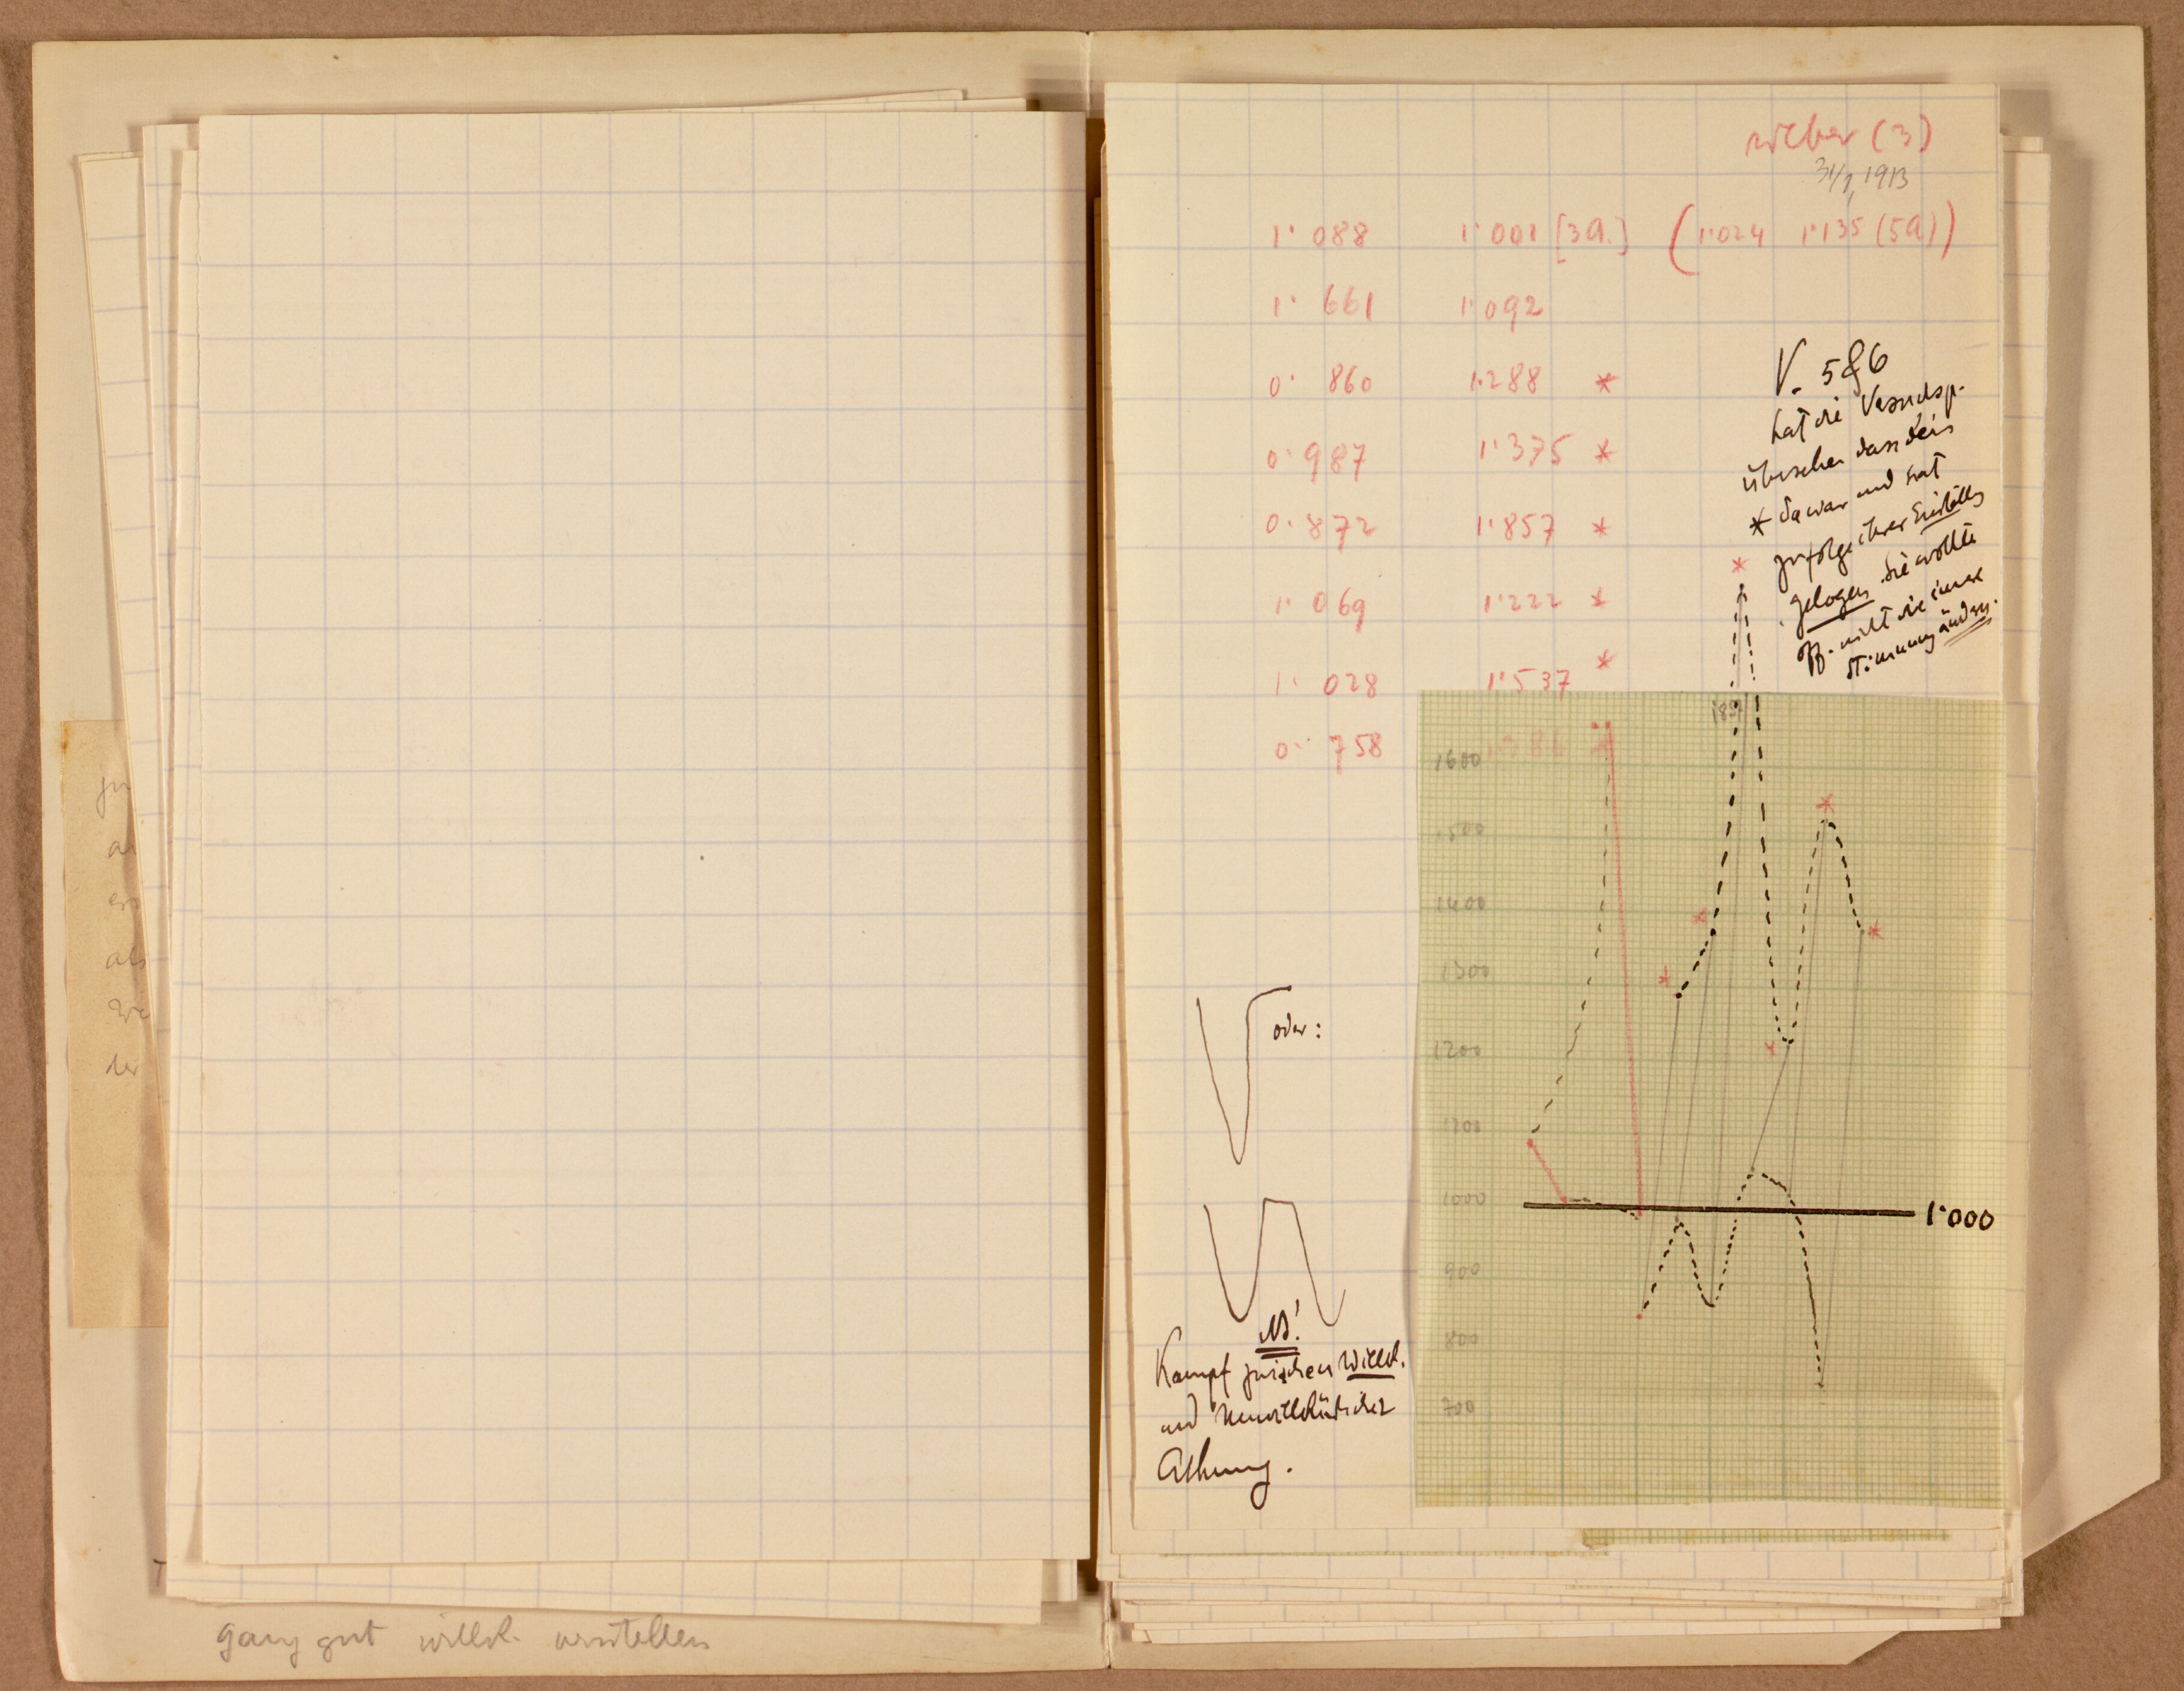 (3)
31/1 1913
1· 088 1·001 [3a.] (1·024 1·135 (5a))
1· 661 1·092
0· 860 1·288 *
0· 987 1·375 *
0· 872 1·857 *
1· 069 1·222 *
1· 028 1·537 *
0· 758 1·386 *
V. 5&6
hat die Versuchsp.
übersehen dass kein
* da war und hat
zufolge ihrer Einstellg
gelogen. Sie wollte
off. nicht die innere
Stimmung ändern.
185
1600
1500
1400
1300
1200
1100
1000
1·000
900
800
700
oder:
NB!
Kampf zwischen willk.
und unwillkürlicher
Athmung.
zu
als
der
ganz gut willk. verstellen